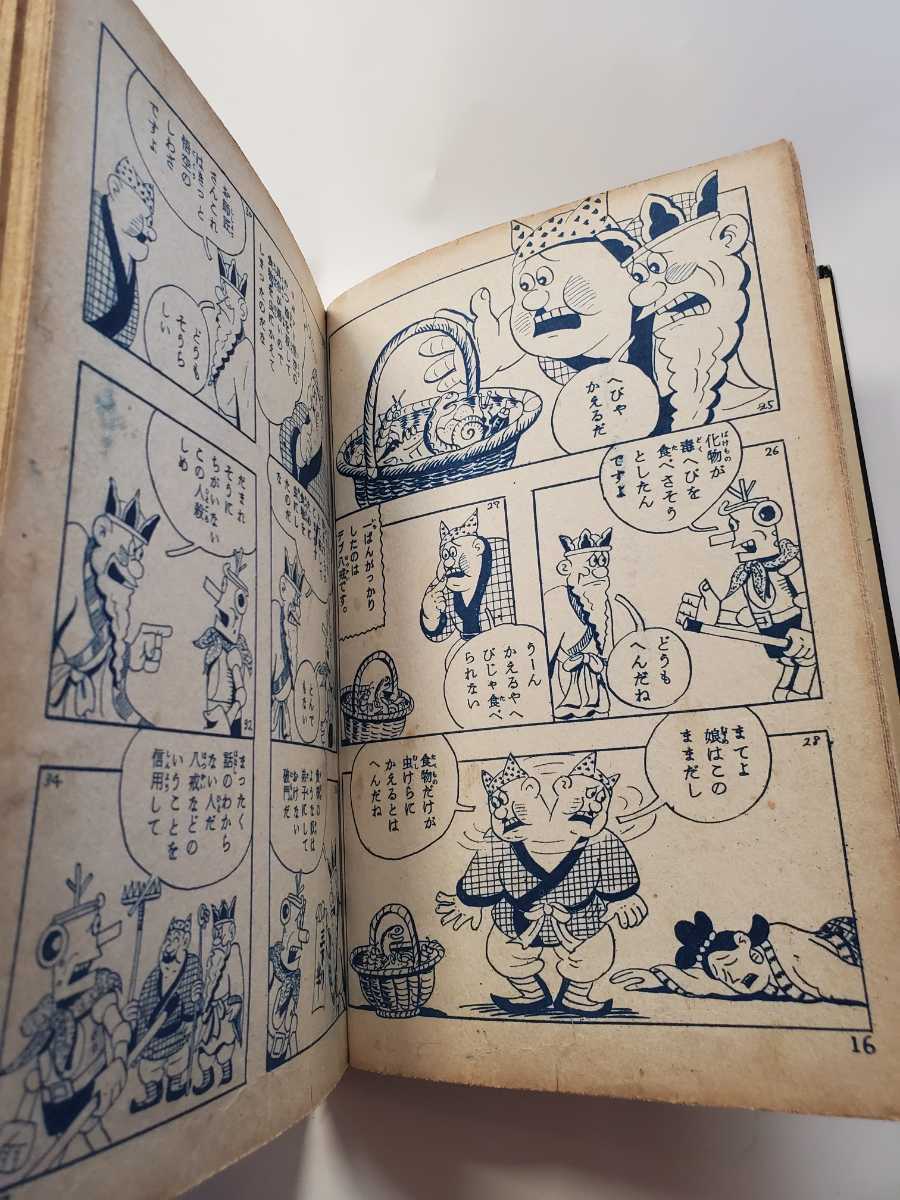 25
へびや
かえるだ
26
化物が
毒へびを
食べさそう
としたん
ですよ
どうも
へんだね
27
うーん
かえるやへ
びじゃ食べ
られない
ばんがっかり
したのは
デブ八戒です。
28
まてよ
娘はこの
ままだし
食物だけが
虫けらに
かえるとは
へんだね
16
お師匠
さんこれ
はきっと
悟空の
しわざ
ですよ
どうも
そうら
しい
だまれ
そうに
ちがいない
この人殺
しめ
32
とんで
もない
破門だ
34
まったく
話のわから
ない人だ
八戒などの
いうことを
信用して